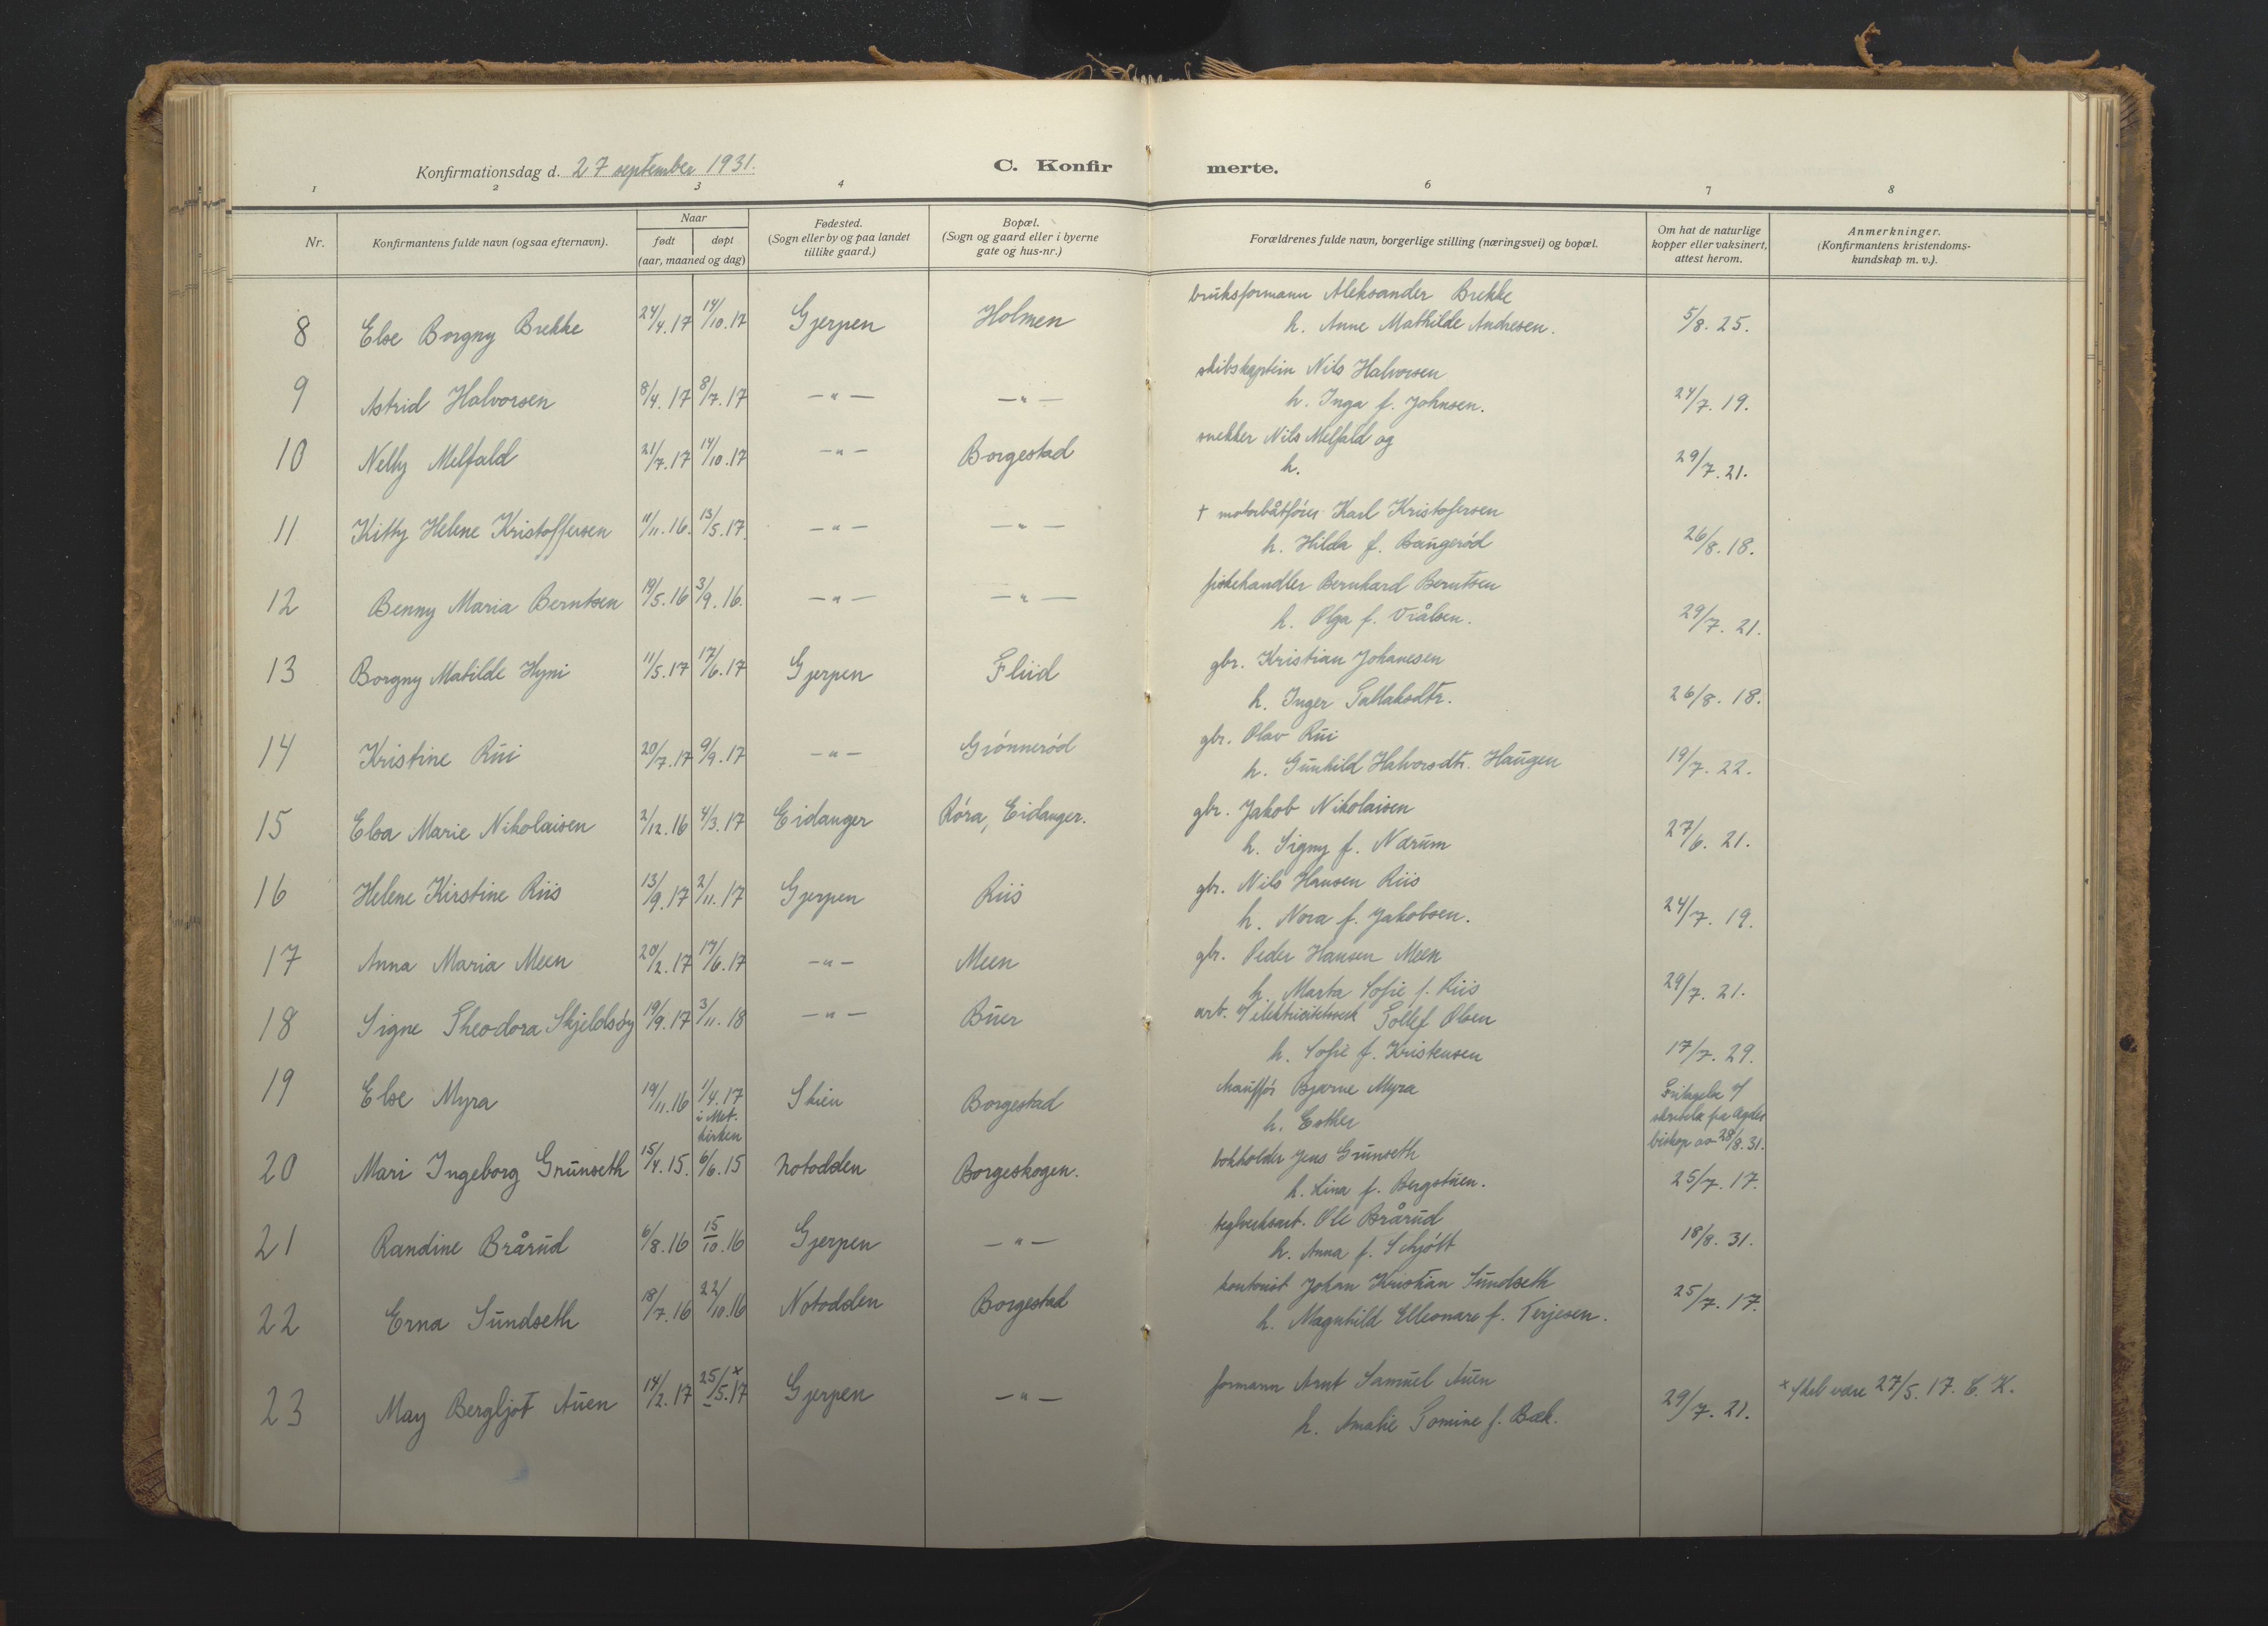 Konfirmationsdag d. 27 september 1931.
C. Konfir
merte.
1 2 3 4 6 7 8
Nr.
Konfirmantens fulde navn (ogsaa efternavn).
Naar
født døpt
(aar, maaned og dag)
Fødested.
(Sogn eller by og paa landet
tillike gaard.)
Bopæl.
(Sogn og gaard eller i byerne
gate og hus-nr.)
Forældrenes fulde navn, borgerlige stilling (næringsvei) og bopæl.
Om hat de naturlige
kopper eller vaksinert,
attest herom.
Anmerkninger.
(Konfirmantens kristendoms-
kundskap m. v.).
bruksformann Aleksander Brekke
8 Else Borgny Brekke 24/4.17 14/10.17 Gjerpen Holmen h. Anne Mathilde Andresen. 5/8. 25.
skibskaptein Nils Halvorsen
9 Astrid Halvorsen 8/4.17 8/7.17 —"— —"— h. Inga f. Johnsen. 24/7. 19.
snekker Nils Melfald og
10 Nelly Melfald 21/7.17 14/10.17 —"— Borgestad h. 29/7. 21.
† motorbåtfører Karl Kristofersen
11 Kitty Helene Kristoffersen 11/11.16. 13/5.17. —"— —"— h. Hilda f. Baugerød 26/8. 18.
fiskehandler Bernhard Berntsen
12 Benny Maria Berntsen 19/5.16 3/9.16. —"— —"— h. Olga f. 29/7. 21.
gbr. Kristian Johanesen
13 Borgny Matilde Hyni 11/5.17 17/6.17 Gjerpen Fluid h. Inger Tallaksdtr. 26/8. 18.
gbr. Olav Rui
14 Kristine Rui 20/7.17 9/9.17 —"— Grønnerød h. Gunhild Halvorsdtr. Haugen 19/7. 22.
gbr. Jakob Nikolaisen
15 Elsa Marie Nikolaisen 2/12.16 4/3.17 Eidanger Røra, Eidanger. h. Signy f. Nærum 27/6. 21.
gbr. Nils Hansen Riis
16 Helene Kirstine Riis 13/9.17 2/11.17 Gjerpen Riis h. Nora f. Jakobsen. 24/7. 19.
gbr. Peder Hansen Meen
17 Anna Maria Meen 20/2.17 17/6.17 —"— Meen h. Marta Sofie f. Riis 29/7. 21.
arb. v/ elektricitetsverk Tollef Olsen
18 Signe Theodora Skjeldsøy 19/9.17 3/11.18 —"— Buer h. Sofie f. Kristensen 17/7. 29.
chauffør Bjarne Myra
19 Else Myra 19/11.16 1/4.17 i Met. kirken Skien Borgestad h. Esther Fritagelse v/
skrivelse fra Agder
biskop av 28/8.31.
bokholder Jens Grunseth
20 Mari Ingeborg Grunseth 15/4.15. 6/6.15 Notodden Borgeskogen. h. Lina f. Bergstuen. 25/7. 17.
teglverksarb. Ole Brårud
21 Randine Brårud 6/8.16 15/10.16 Gjerpen —"— h. Anna f. Schjøtt 18/8. 31.
kontorist Johan Kristian Sundseth
22 Erna Sundseth 18/7.16 22/10.16 Notodden Borgestad h. Magnhild Elleonare f. Terjesen. 25/7. 17.
formann Arnt Samuel Auen
23 May Bergljot Auen 14/2.17 25/5.17 x Gjerpen —"— h. Amalie Tomine f. Bæk. 29/7. 21. x Skal være 27/5. 17. C. K.